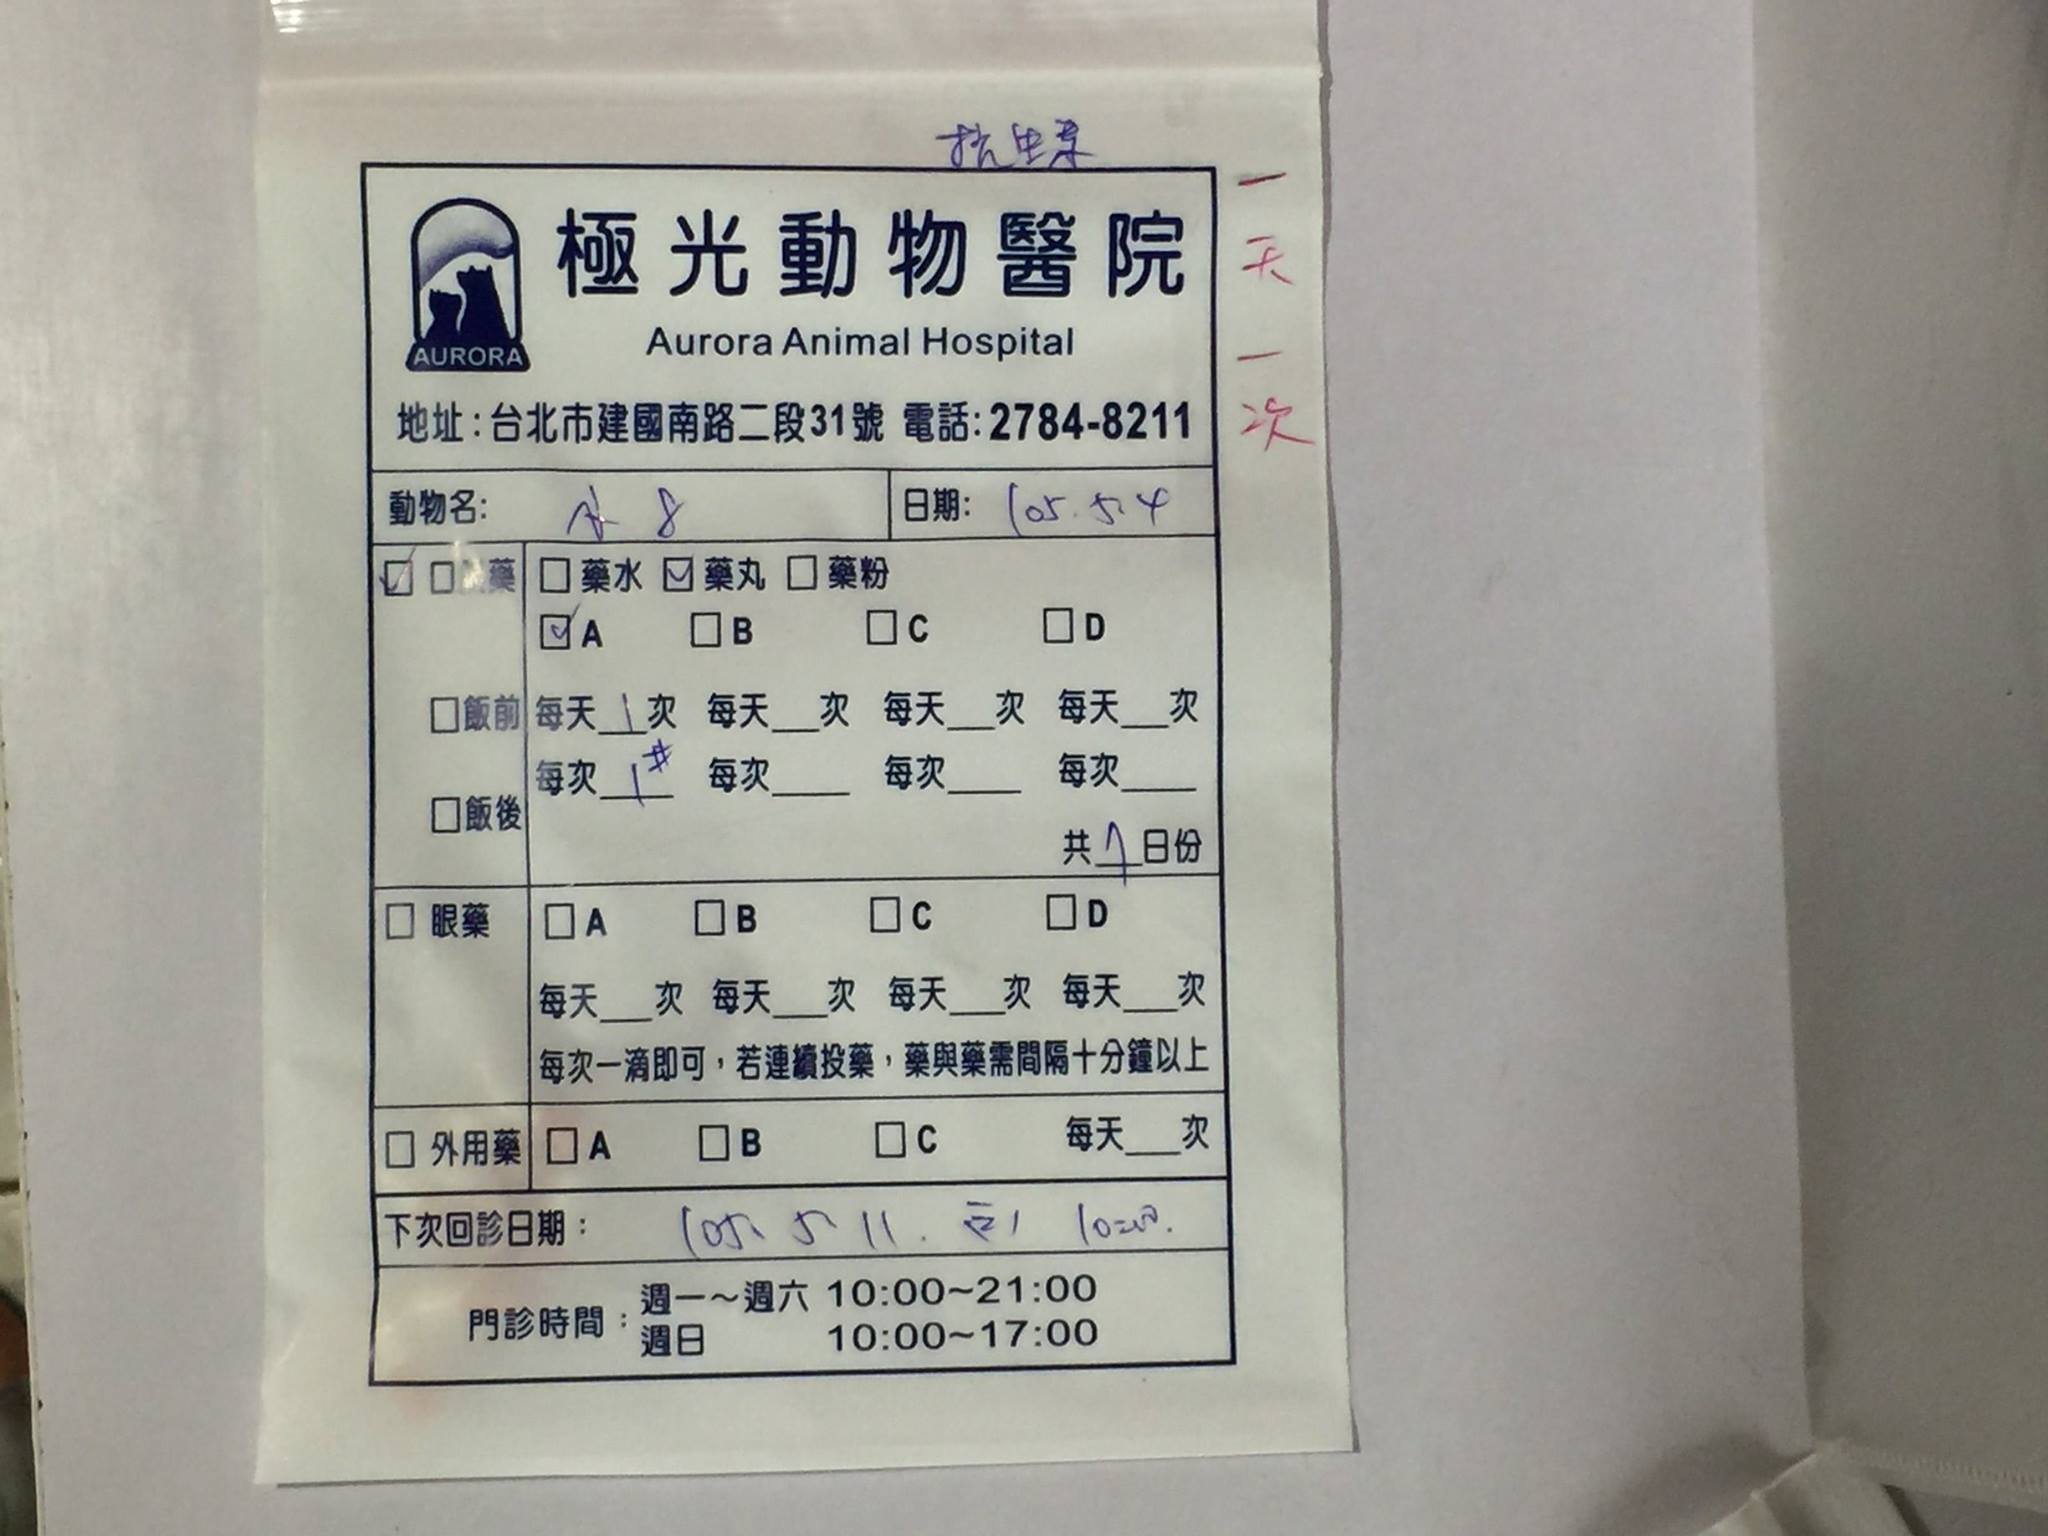 抗生素
一天一次
極光動物醫院
AURORA
Aurora Animal Hospital
地址:台北市建國南路二段31號 電話:2784-8211
動物名: 8 日期: 105.5.4
藥 □藥水 ☑藥丸 □藥粉
☑A □B □C □D
□飯前 每天 1 次 每天__次 每天__次 每天__次
每次 1# 每次___ 每次___ 每次___
□飯後
共 7 日份
□ 眼藥 □A □B □C □D
每天__次 每天__次 每天__次 每天__次
每次一滴即可，若連續投藥，藥與藥需間隔十分鐘以上
□ 外用藥 □A □B □C 每天__次
下次回診日期： 105. 5 11.
門診時間： 週一～週六 10:00~21:00
週日 10:00~17:00